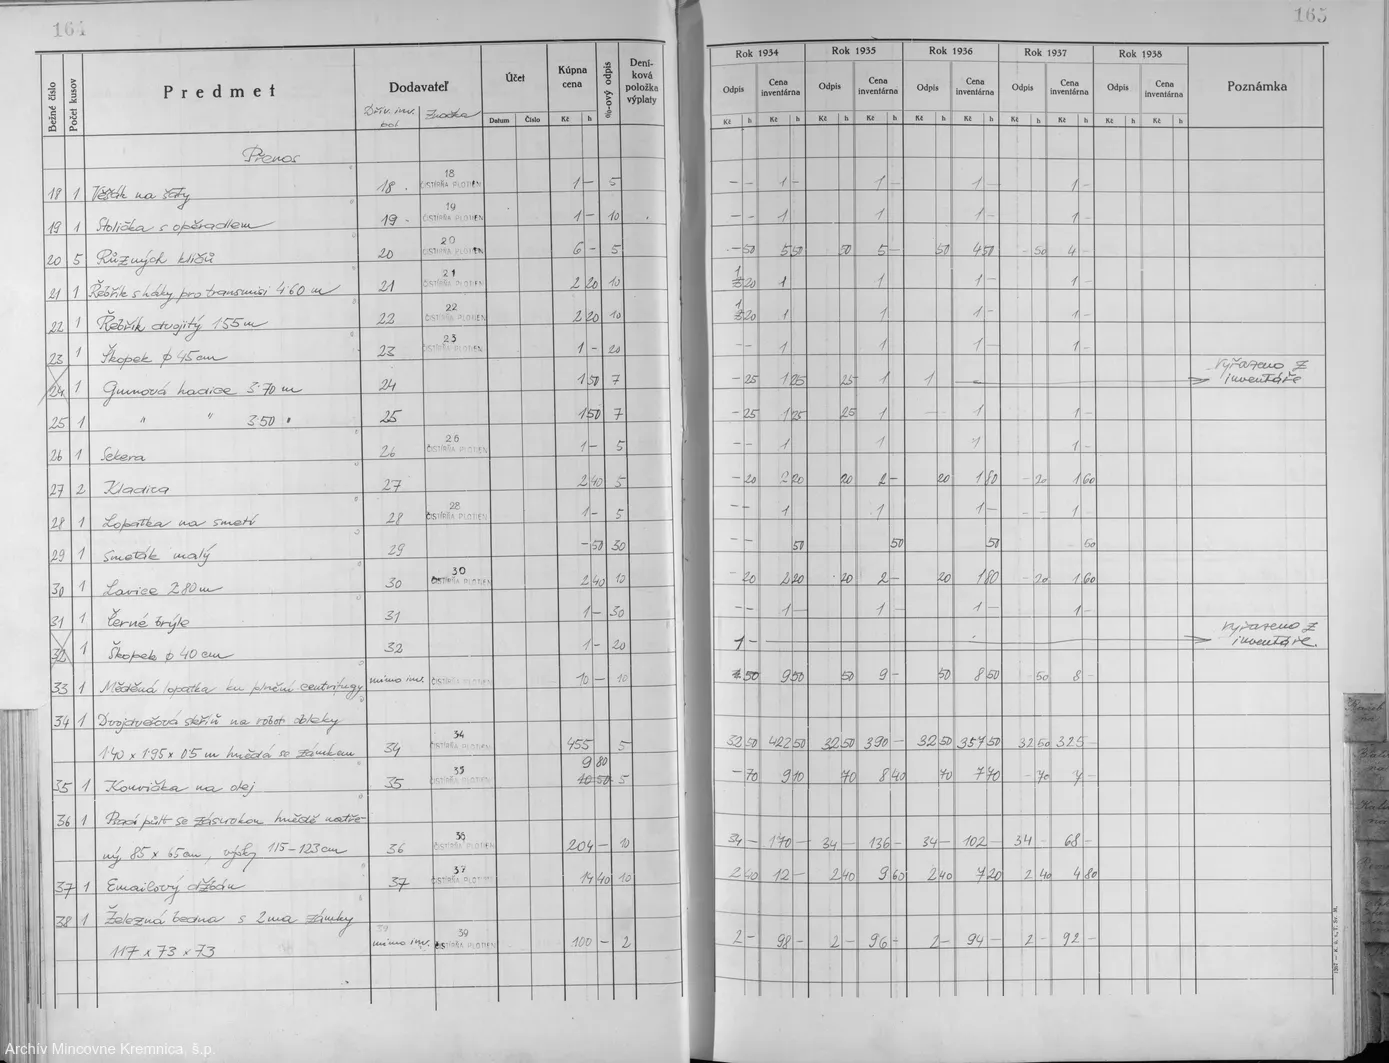 164
165
Bežné číslo | Počet kusov | Predmet | Dodavateľ | Účet | Kúpna cena | %-ový odpis | Deníková položka výplaty | Rok 1934 | Rok 1935 | Rok 1936 | Rok 1937 | Rok 1938 | Poznámka
Dřív. inv. | Značka | Datum | Číslo | Kč | h | Odpis | Cena inventárna | Odpis | Cena inventárna | Odpis | Cena inventárna | Odpis | Cena inventárna | Odpis | Cena inventárna
Kč | h | Kč | h | Kč | h | Kč | h | Kč | h | Kč | h | Kč | h | Kč | h | Kč | h | Kč | h
Přenos
18 | 1 | Věšák na šaty | 18 | 18 ČISTÍRŇA PLOTIEN | 1 – | 5 | – – | 1 – | 1 – | 1 – | 1 –
19 | 1 | Stolička s opěradlem | 19 | 19 ČISTÍRŇA PLOTIEN | 1 – | 10 | – – | 1 | 1 | 1 – | 1 –
20 | 5 | Různých klíčů | 20 | 20 ČISTÍRŇA PLOTIEN | 6 – | 5 | – 50 | 5 50 | 50 | 5 – | 50 | 4 50 | – 50 | 4 –
21 | 1 | Řebřík s háky pro transmisi 4·60 m | 21 | 21 ČISTÍRŇA PLOTIEN | 2 20 | 10 | 1 20 | 1 | 1 | 1 – | 1 –
22 | 1 | Řebřík dvojitý 1·55 m | 22 | 22 ČISTÍRŇA PLOTIEN | 2 20 | 10 | 1 20 | 1 | 1 | 1 – | 1 –
23 | 1 | Škopek ϕ 45 cm | 23 | 23 ČISTÍRŇA PLOTIEN | 1 – | 20 | – – | 1 | 1 | 1 – | 1 –
24 | 1 | Gumová hadice 3·70 m | 24 | 1 50 | 7 | – 25 | 1 25 | 25 | 1 | 1 – | vyřazeno z inventáře
25 | 1 | " " 3·50 " | 25 | 1 50 | 7 | – 25 | 1 25 | 25 | 1 | – | 1 | 1 –
26 | 1 | Sekera | 26 | 26 ČISTÍRŇA PLOTIEN | 1 – | 5 | – – | 1 | 1 | 1 | 1 –
27 | 2 | Kladiva | 27 | 2 40 | 5 | – 20 | 2 20 | 20 | 2 – | 20 | 1 80 | – 20 | 1 60
28 | 1 | Lopatka na smetí | 28 | 28 ČISTÍRŇA PLOTIEN | 1 – | 5 | – – | 1 | 1 | 1 – | 1 –
29 | 1 | Smeták malý | 29 | – 50 | 30 | – – | 50 | 50 | 50 | 50
30 | 1 | Lavice 2·80 m | 30 | 30 ČISTÍRŇA PLOTIEN | 2 40 | 10 | – 20 | 2 20 | 20 | 2 – | 20 | 1 80 | – 20 | 1 60
31 | 1 | Černé brýle | 31 | 1 – | 30 | – – | 1 – | 1 – | 1 – | 1 –
32 | 1 | Škopek ϕ 40 cm | 32 | 1 – | 20 | 1 – | vyřazeno z inventáře.
33 | 1 | Měděná lopatka ku plnění centrifugy | mimo inv. | ČISTÍRŇA PLOTIEN | 10 – | 10 | 50 | 9 50 | 50 | 9 – | 50 | 8 50 | 50 | 8 –
34 | 1 | Dvojdveřová skříň na robot. obleky
1·40 x 1·95 x 0·5 m hnědá se zámkem | 34 | 34 ČISTÍRŇA PLOTIEN | 455 | 5 | 32 50 | 422 50 | 32 50 | 390 – | 32 50 | 357 50 | 32 50 | 325 –
35 | 1 | Konvička na olej | 35 | 35 ČISTÍRŇA PLOTIEN | 9 80 | 10 50 | 5 | – 70 | 9 10 | 70 | 8 40 | 70 | 7 70 | 70 | 7 –
36 | 1 | Psací půlt se zásuvkou hnědě natře-
ný, 85 x 65 cm, výšky 115–123 cm | 36 | 36 ČISTÍRŇA PLOTIEN | 204 – | 10 | 34 – | 170 – | 34 – | 136 – | 34 – | 102 – | 34 – | 68 –
37 | 1 | Emailový džbán | 37 | 37 ČISTÍRŇA PLOTIEN | 14 40 | 10 | 2 40 | 12 – | 2 40 | 9 60 | 2 40 | 7 20 | 2 40 | 4 80
38 | 1 | Železná bedna s 2ma zámky
117 x 73 x 73 | 39 mimo inv. | 39 ČISTÍRŇA PLOTIEN | 100 – | 2 | 2 – | 98 – | 2 – | 96 – | 2 – | 94 – | 2 – | 92 –
Archív Mincovne Kremnica, š.p.